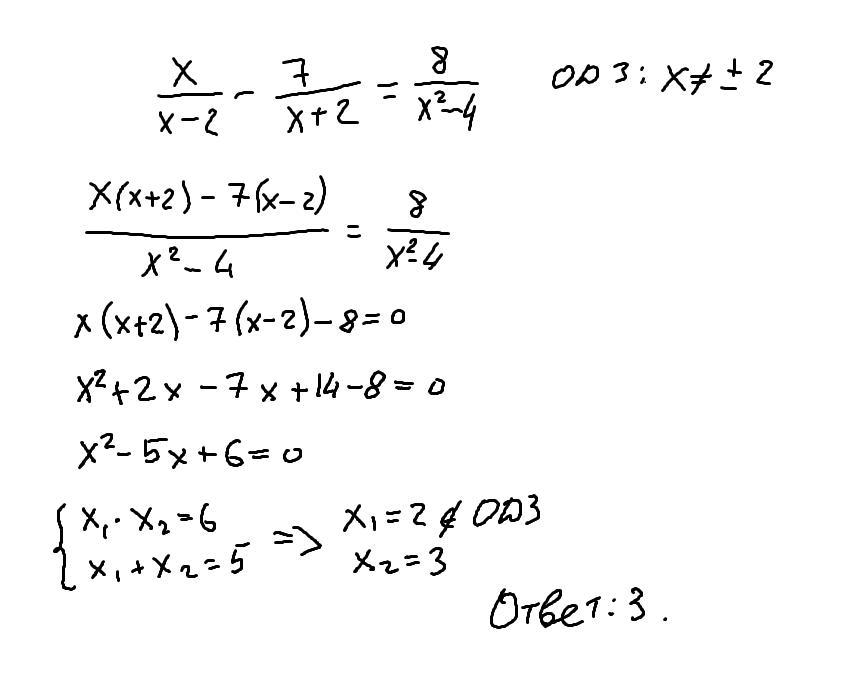 x/(x-2) - 7/(x+2) = 8/(x²-4) ОДЗ: x≠±2
(x(x+2)-7(x-2))/(x²-4) = 8/(x²-4)
x(x+2)-7(x-2)-8=0
x²+2x-7x+14-8=0
x²-5x+6=0
{x₁·x₂=6 => x₁=2∉ОДЗ
x₁+x₂=5 x₂=3
Ответ: 3.